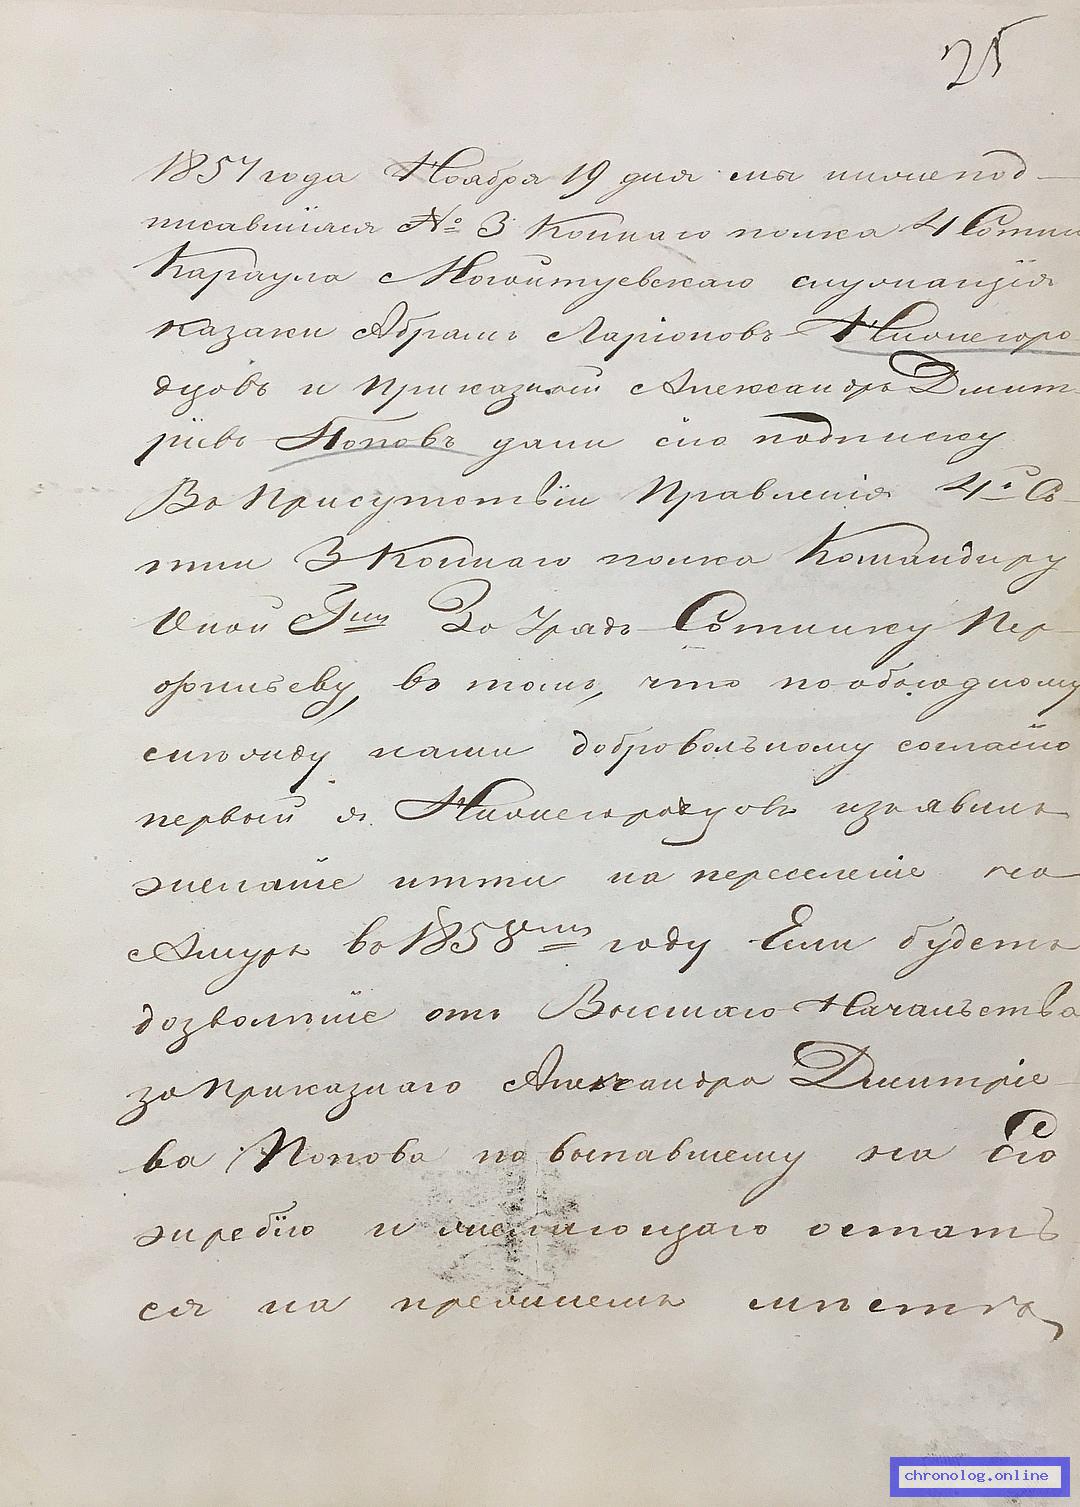 25
1857 года Ноября 19 дня мы нижепод-
писавшіяся № 3 Коннаго полка 4 Сотни
Караула Могойтуевскаго служащія
казаки Абрамъ Ларіоновъ Нижегоро-
дцовъ и Приказный Александръ Дмит-
ріевъ Поповъ дали сію подписку
Въ Присутствіи Правленія 4й Со-
тни 3 Коннаго полка Командиру
Оной Гну За Урядъ Сотнику Пер-
фильеву, въ томъ, что по обоюдному
между нами добровольному согласію
первый я Нижегородцовъ изъявилъ
желаніе итти на переселеніе на
Амуръ въ 1858мъ году Если будетъ
дозволѣніе отъ Высшаго Начальства
за Приказнаго Александра Дмитріе-
ва Попова по выпавшему на Его
жребію и желающаго остать
ся на прежнемъ мѣстѣ,
chronolog.online